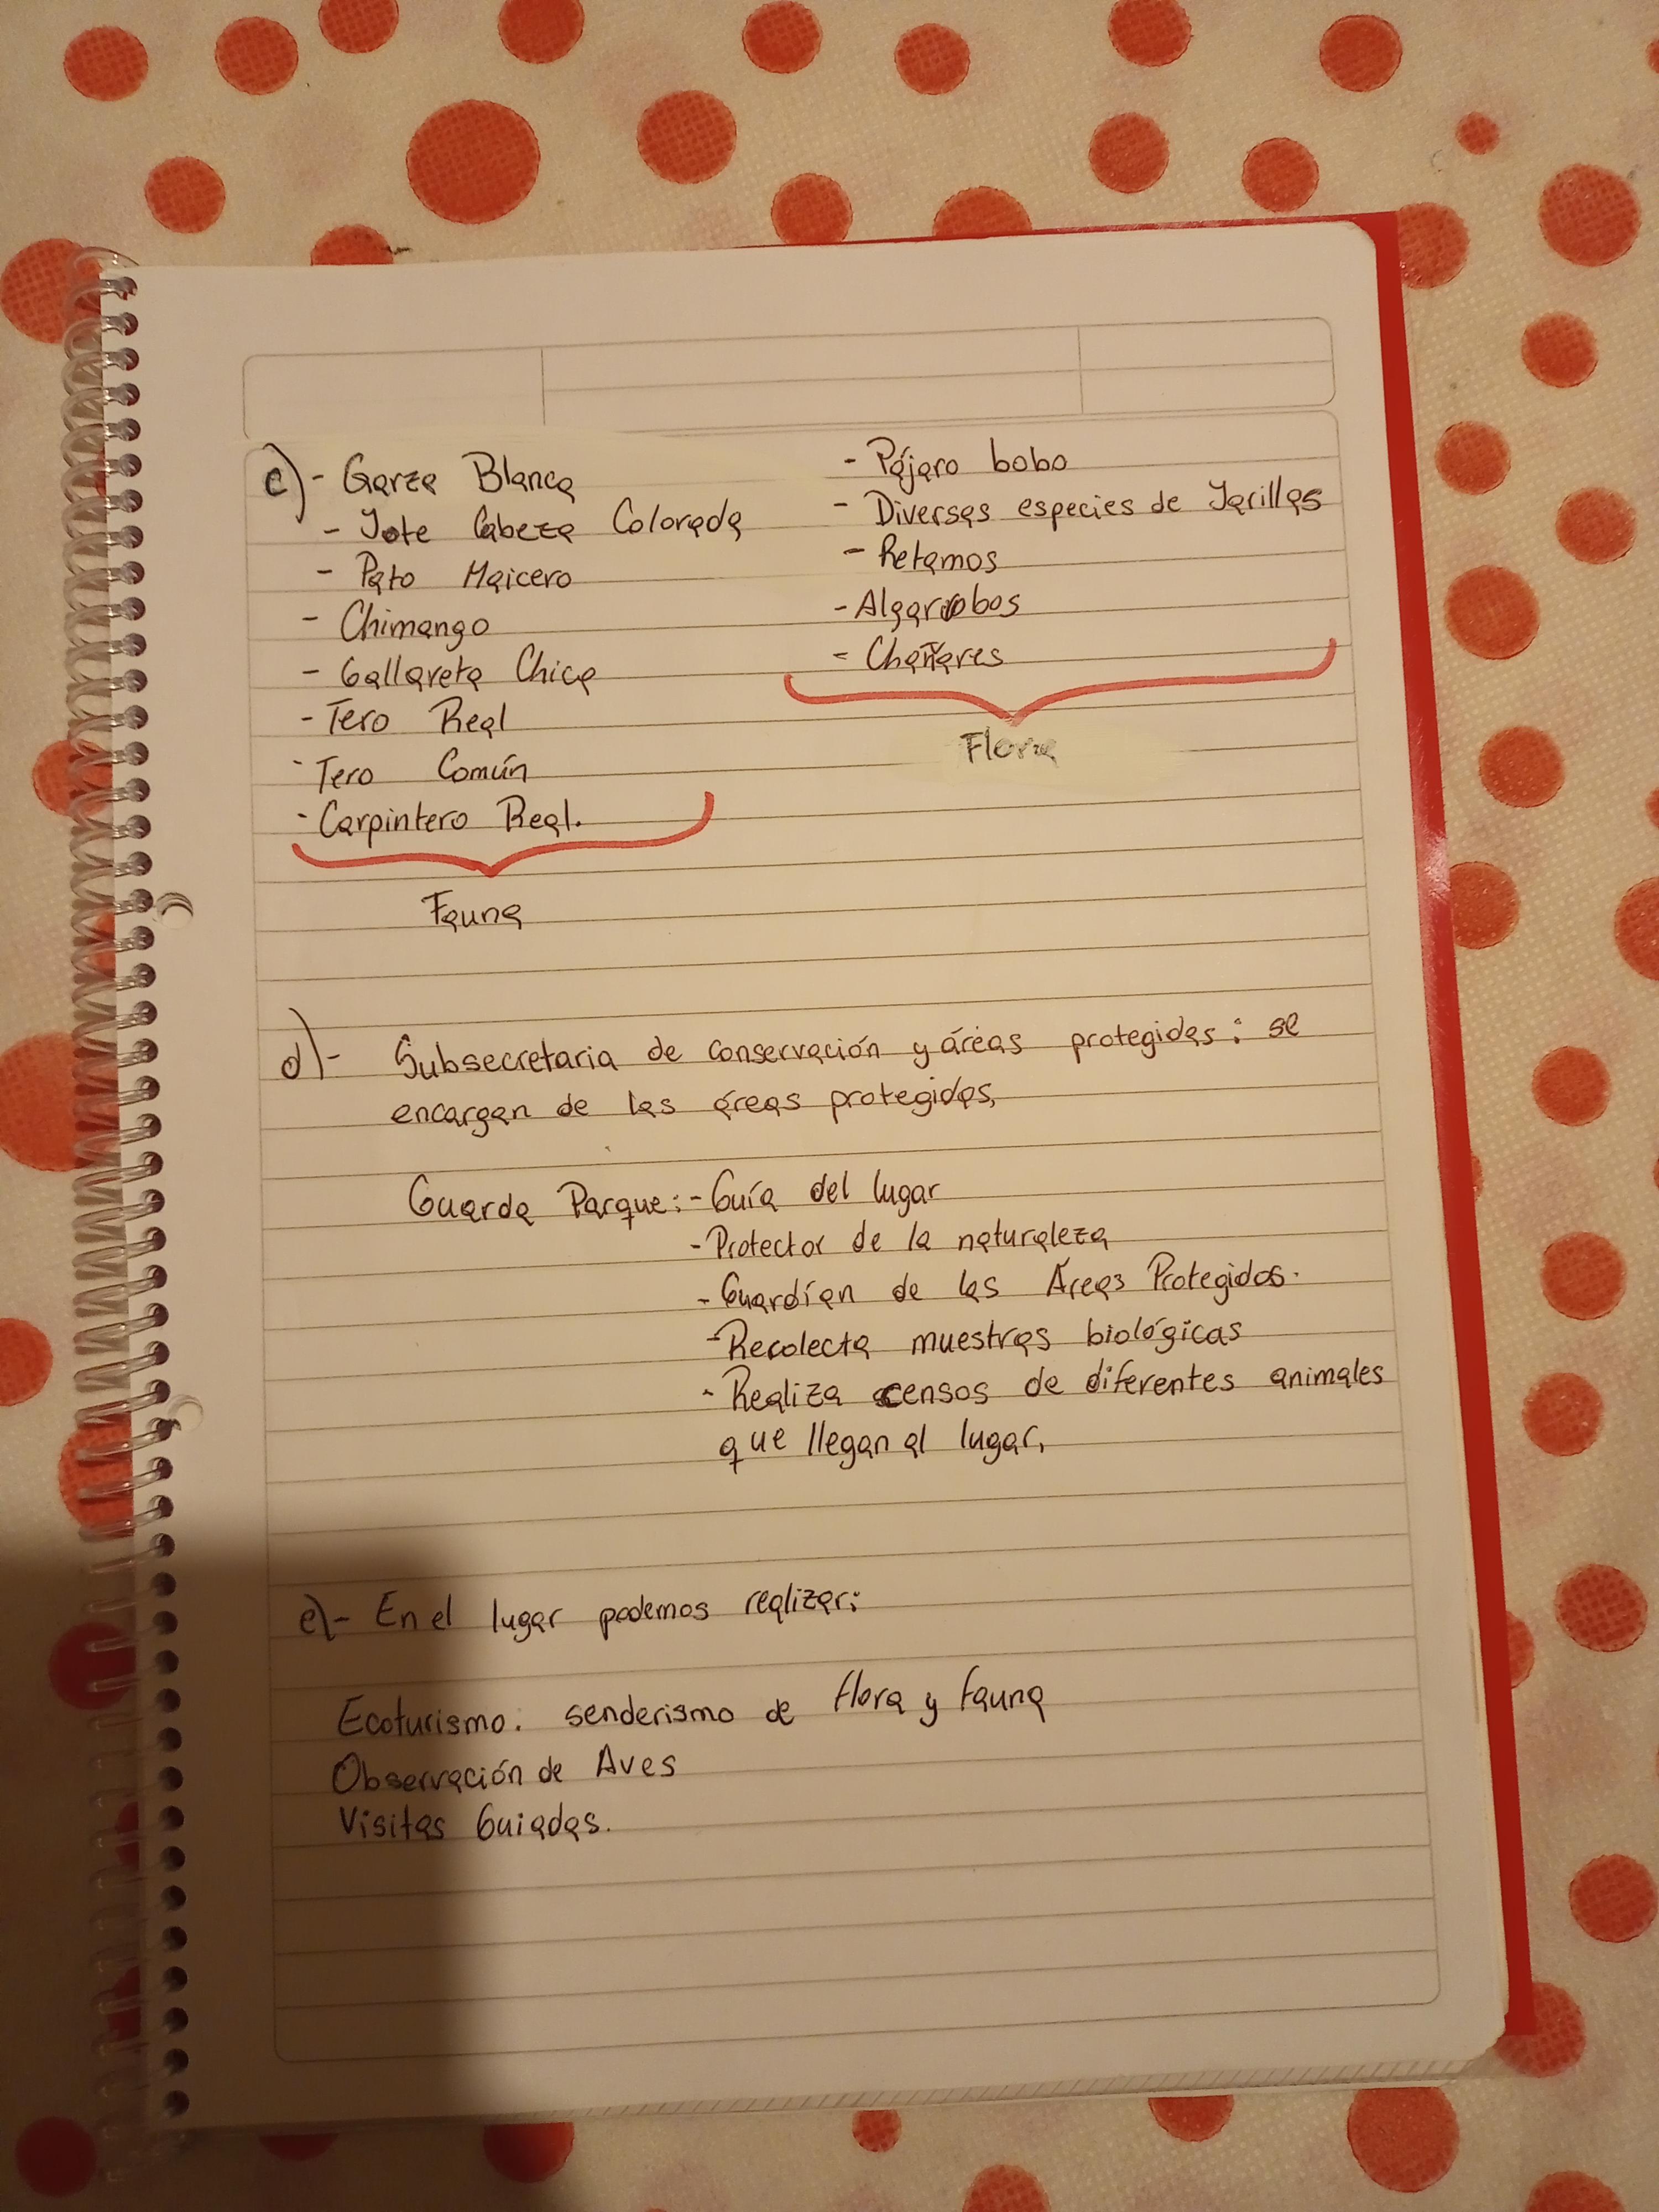 c)- Garza Blanca
- Jote Cabeza Colorada
- Pato Maicero
- Chimango
- Gallareta Chica
- Tero Real
- Tero Común
- Carpintero Real.
Fauna
- Pájaro bobo
- Diversas especies de Jarillas
- Retamos
- Algarrobos
- Chañares
Flora
d)- Subsecretaria de conservación y áreas protegidas: se
encargan de las áreas protegidas,
Guarda Parque: - Guía del lugar
- Protector de la naturaleza
- Guardían de las Áreas Protegidas.
- Recolecta muestras biológicas
- Realiza censos de diferentes animales
que llegan al lugar,
e)- En el lugar podemos realizar:
Ecoturismo: senderismo de flora y fauna
Observación de Aves
Visitas Guiadas.